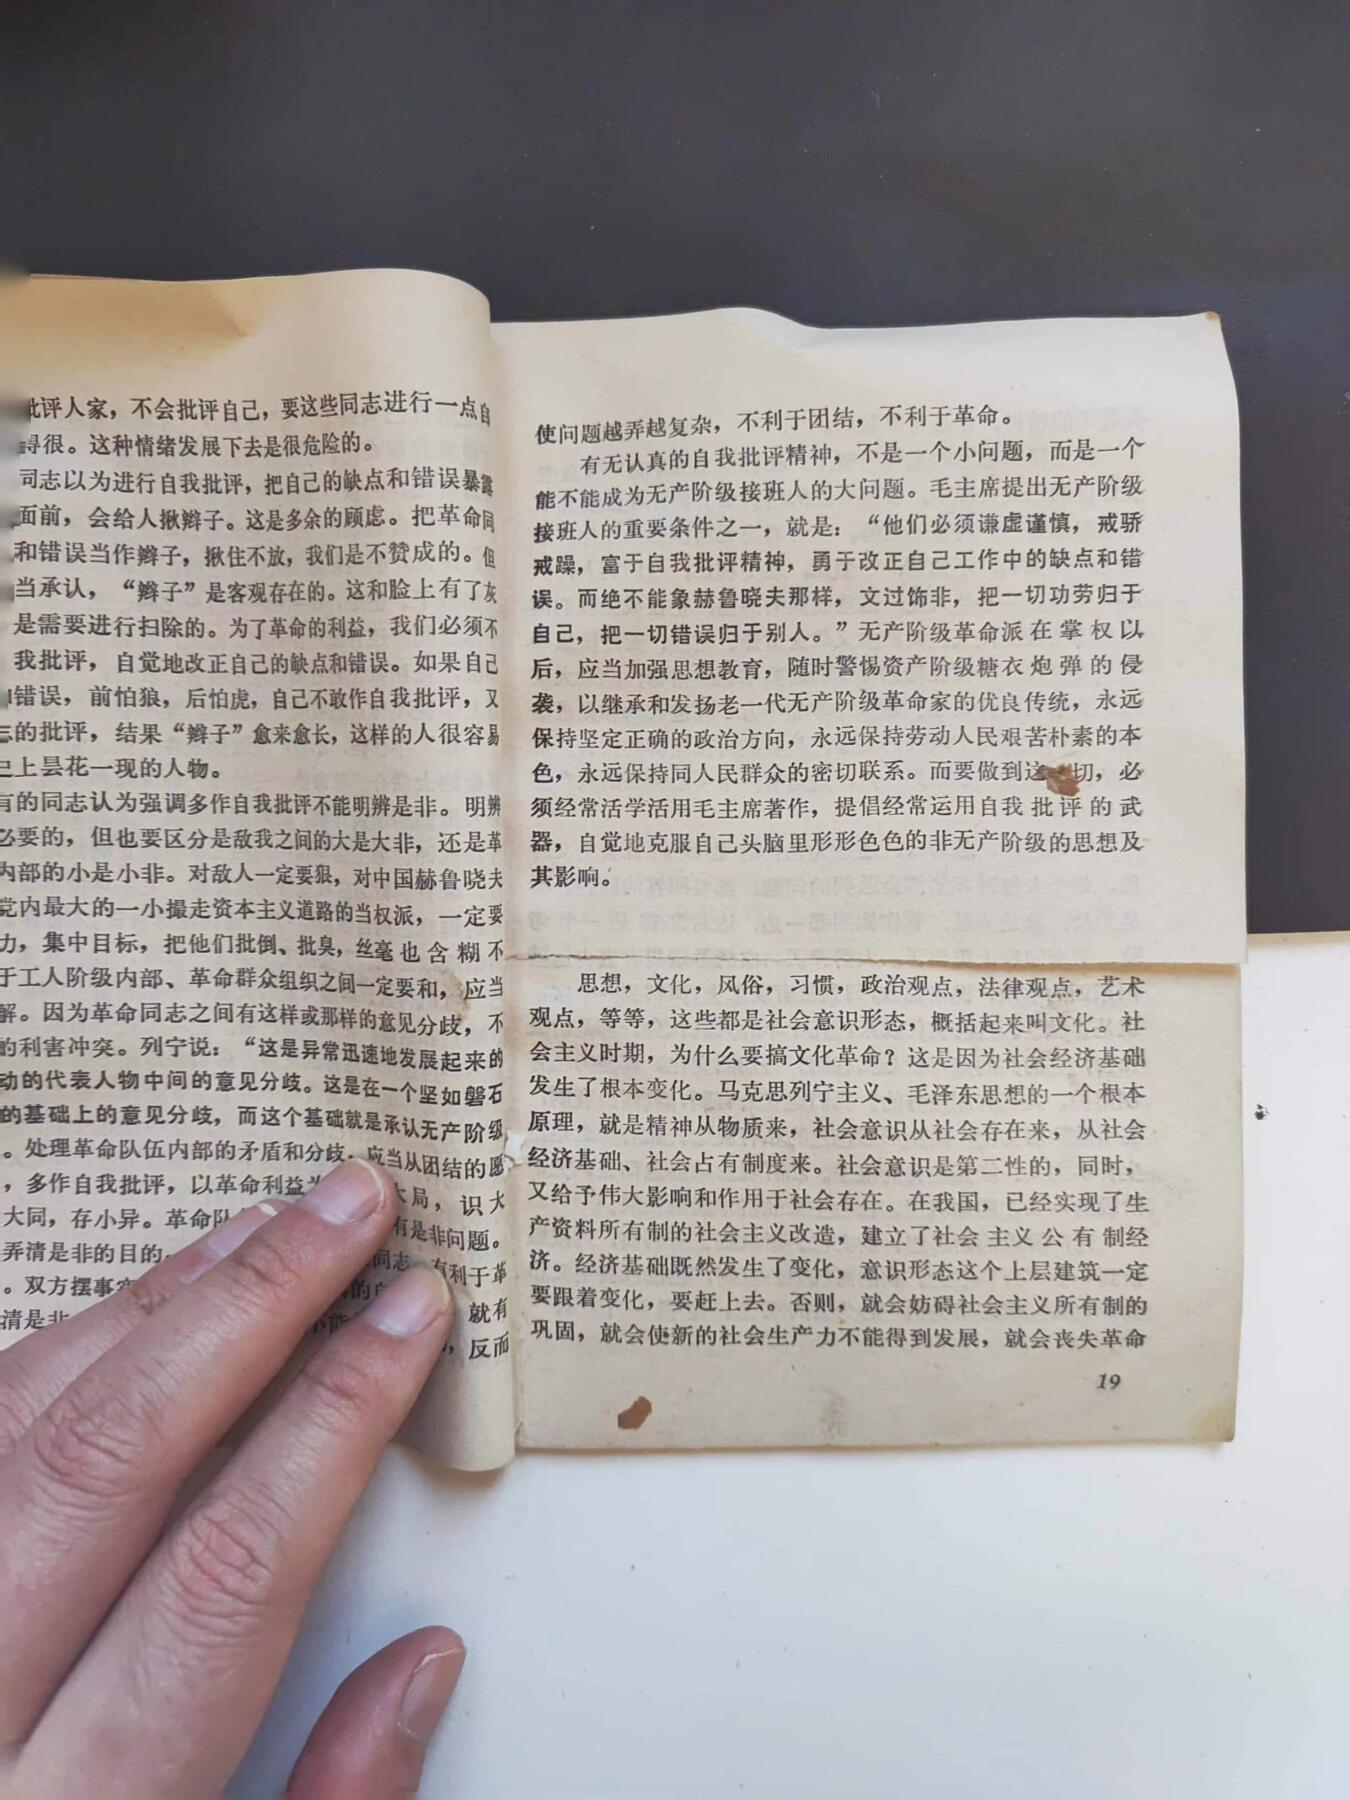 批评人家，不会批评自己，要这些同志进行一点自
得很。这种情绪发展下去是很危险的。
同志以为进行自我批评，把自己的缺点和错误暴露
面前，会给人揪辫子。这是多余的顾虑。把革命同
和错误当作辫子，揪住不放，我们是不赞成的。但
当承认，“辫子”是客观存在的。这和脸上有了灰
是需要进行扫除的。为了革命的利益，我们必须不
我批评，自觉地改正自己的缺点和错误。如果自己
错误，前怕狼，后怕虎，自己不敢作自我批评，又
志的批评，结果“辫子”愈来愈长，这样的人很容易
上昙花一现的人物。
有的同志认为强调多作自我批评不能明辨是非。明辨
必要的，但也要区分是敌我之间的大是大非，还是革
内部的小是小非。对敌人一定要狠，对中国赫鲁晓夫
党内最大的一小撮走资本主义道路的当权派，一定要
力，集中目标，把他们批倒、批臭，丝毫也含糊不
于工人阶级内部、革命群众组织之间一定要和，应当
解。因为革命同志之间有这样或那样的意见分歧，不
的利害冲突。列宁说：“这是异常迅速地发展起来的
动的代表人物中间的意见分歧。这是在一个坚如磐石
的基础上的意见分歧，而这个基础就是承认无产阶级
。处理革命队伍内部的矛盾和分歧，应当从团结的愿
，多作自我批评，以革命利益为大局，识大
大同，存小异。革命队有是非问题。
弄清是非的目的同志，有利于革
。双方摆事的自，就有
清是非不能，反而
使问题越弄越复杂，不利于团结，不利于革命。
有无认真的自我批评精神，不是一个小问题，而是一个
能不能成为无产阶级接班人的大问题。毛主席提出无产阶级
接班人的重要条件之一，就是：“他们必须谦虚谨慎，戒骄
戒躁，富于自我批评精神，勇于改正自己工作中的缺点和错
误。而绝不能象赫鲁晓夫那样，文过饰非，把一切功劳归于
自己，把一切错误归于别人。”无产阶级革命派在掌权以
后，应当加强思想教育，随时警惕资产阶级糖衣炮弹的侵
袭，以继承和发扬老一代无产阶级革命家的优良传统，永远
保持坚定正确的政治方向，永远保持劳动人民艰苦朴素的本
色，永远保持同人民群众的密切联系。而要做到这切，必
须经常活学活用毛主席著作，提倡经常运用自我批评的武
器，自觉地克服自己头脑里形形色色的非无产阶级的思想及
其影响。
思想，文化，风俗，习惯，政治观点，法律观点，艺术
观点，等等，这些都是社会意识形态，概括起来叫文化。社
会主义时期，为什么要搞文化革命？这是因为社会经济基础
发生了根本变化。马克思列宁主义、毛泽东思想的一个根本
原理，就是精神从物质来，社会意识从社会存在来，从社会
经济基础、社会占有制度来。社会意识是第二性的，同时，
又给予伟大影响和作用于社会存在。在我国，已经实现了生
产资料所有制的社会主义改造，建立了社会主义公有制经
济。经济基础既然发生了变化，意识形态这个上层建筑一定
要跟着变化，要赶上去。否则，就会妨碍社会主义所有制的
巩固，就会使新的社会生产力不能得到发展，就会丧失革命
19